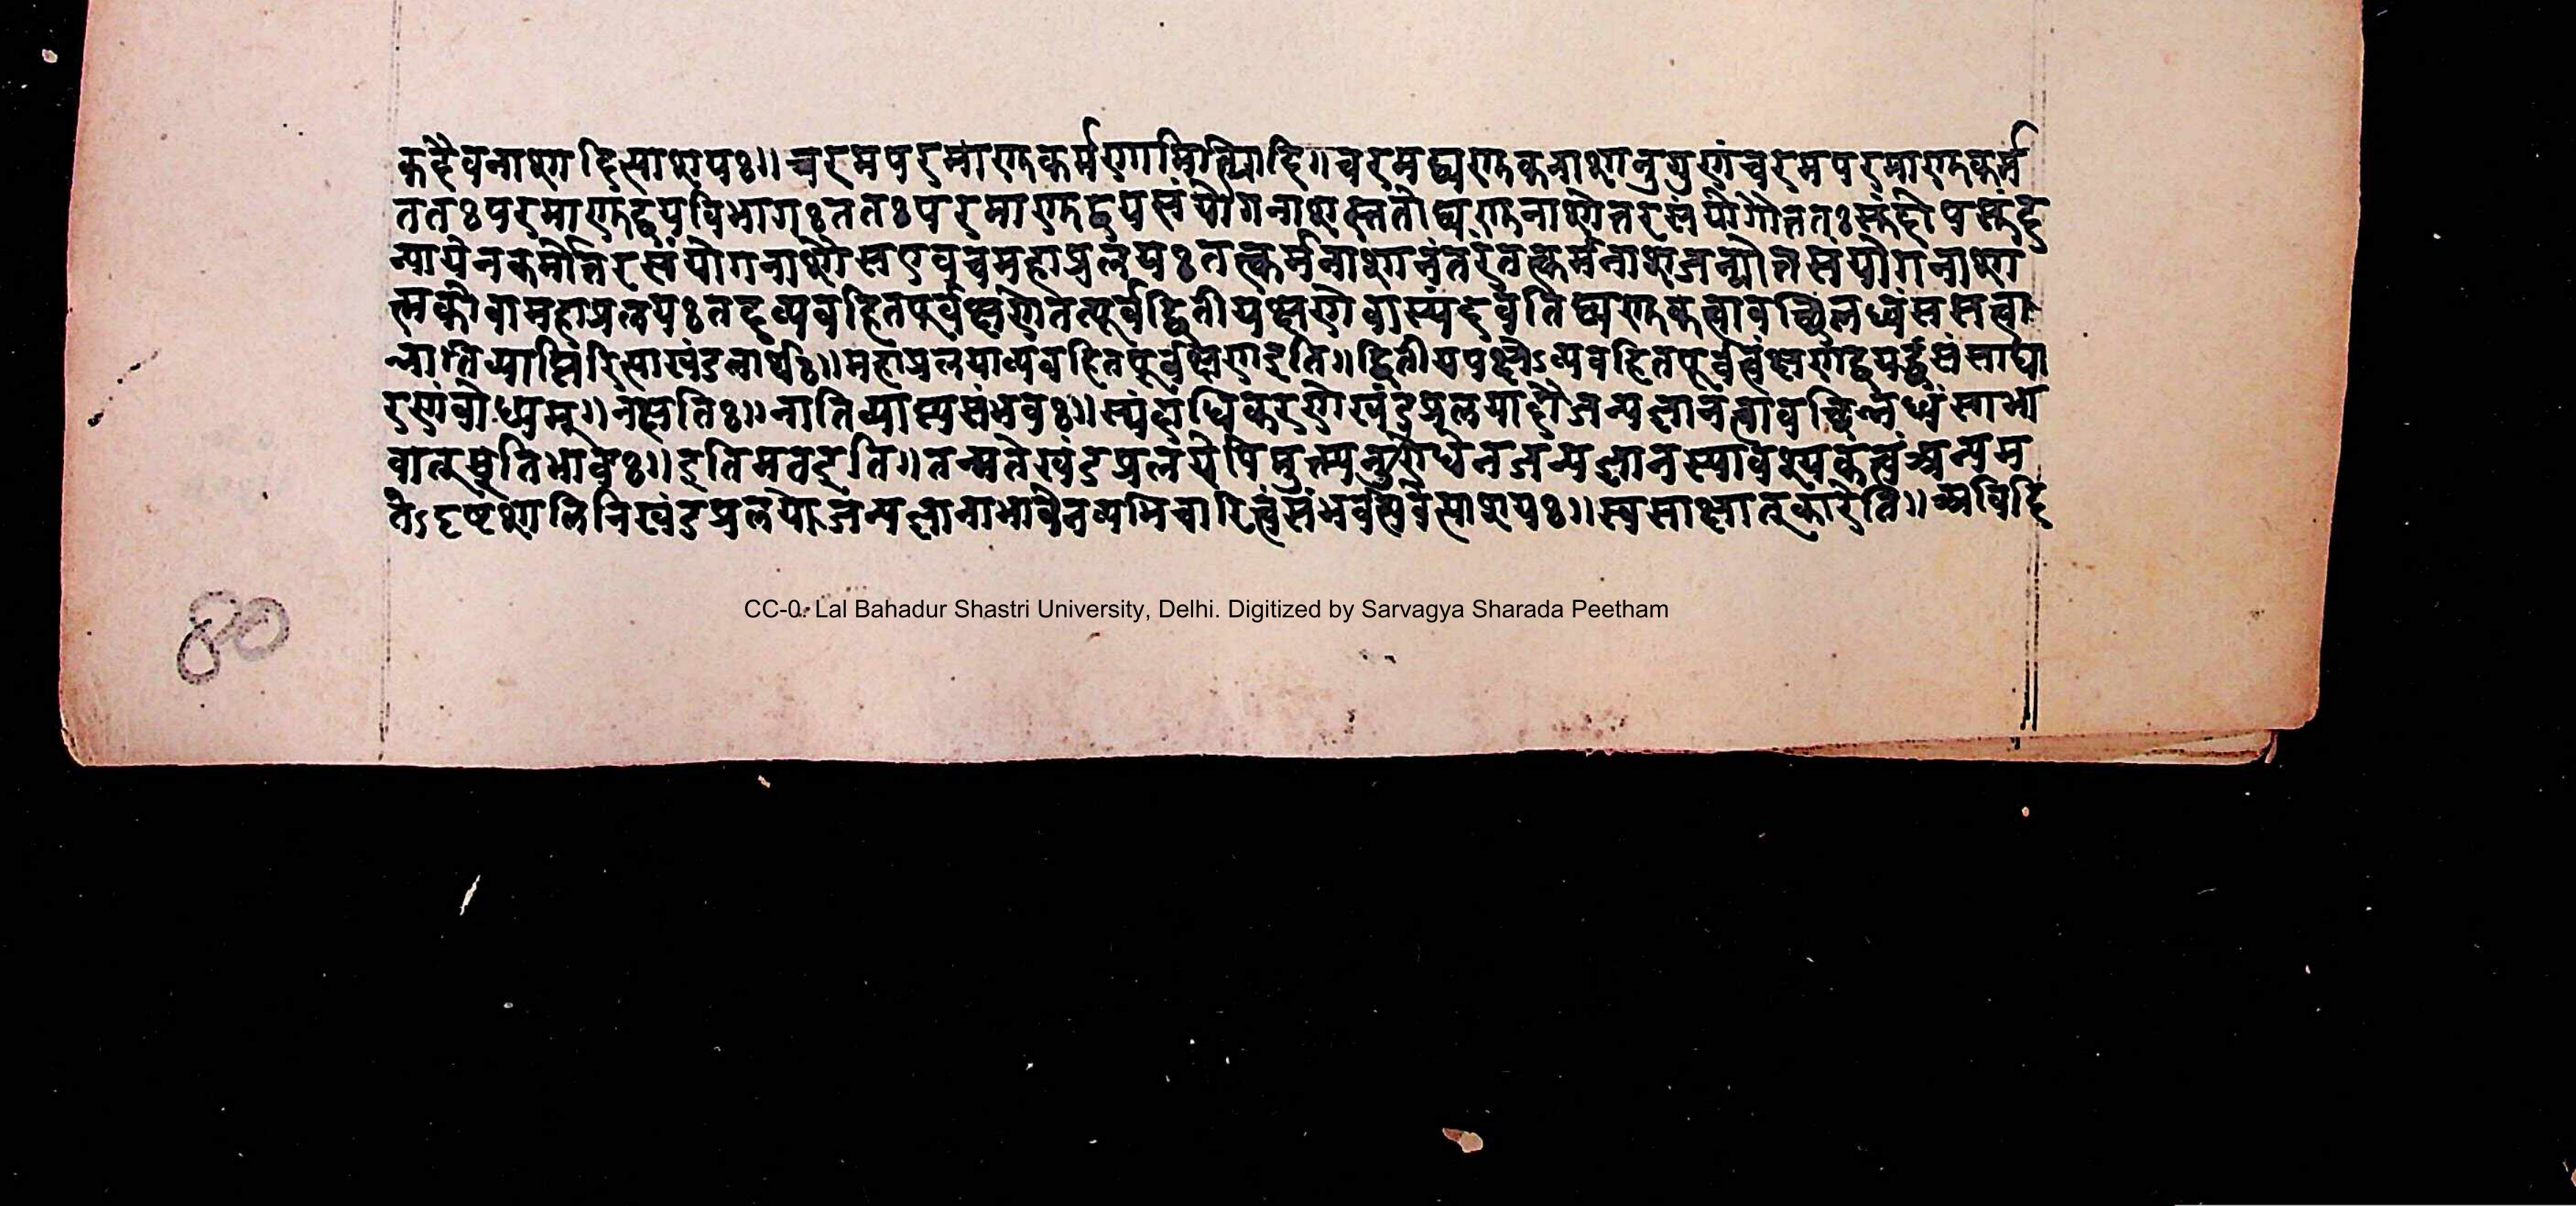 कदैवनाशादित्याशयः॥ चरमपरमाणुकर्मणामित्यादि॥ चरमद्व्यणुकनाशानुगुणंचरमपरमाणुकर्म
ततःपरमाणुद्वयविभागःततःपरमाणुद्वयसंयोगनाशस्ततोद्व्यणुकनाशोत्तरसंयोगौततः
न्यायेनकर्मोत्तरसंयोगनाशौसएवचमहाप्रलयःतत्कर्मनाशानंतरंतत्कर्मनाशजन्योत्तसंयोगनाशा
त्मकोवामहाप्रलयःतदव्यवहितपूर्वक्षणेतत्पूर्वद्वितीयक्षणेवास्पंदवतिद्व्यणुकत्वावच्छिन्नध्वंससत्वा
न्नातिव्याप्तिरित्याखंडलार्थः॥ महाप्रलयाव्यवहितपूर्वक्षणइति॥ द्वितीयपक्षेऽव्यवहितपूर्वत्वंक्षणद्वय
रणंबोध्यम्॥ नक्षतिः॥ नातिव्याप्त्यसंभवः॥ स्पंदाधिकरणेखंडप्रलयादौजन्यज्ञानत्वावच्छिन्नध्वंसाभा
वात्स्मृतिभावः॥ इतिमतइति॥ तन्मतेखंडप्रलयेपिमुक्त्यनुरोधेनजन्यज्ञानस्यावश्यकत्वंअन्यम
तेऽदृष्टशालिनिखंडप्रलयोजन्यज्ञानाभावेनव्यभिचारित्वंसंभवत्येवेत्याशयः॥ स्वसाक्षात्कारेति॥ अविद्दि
80
CC-0. Lal Bahadur Shastri University, Delhi. Digitized by Sarvagya Sharada Peetham